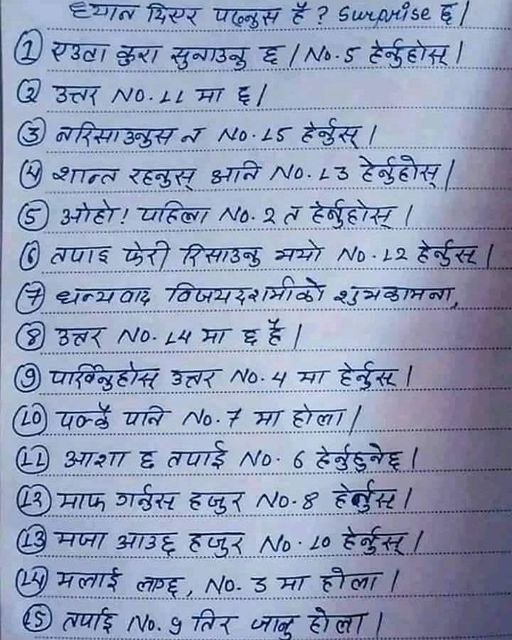 ध्यान दिएर पढ्नुस है ? Surprise छ |
① एउटा कुरा सुनाउनु छ | No. 5 हेर्नुहोस् |
② उत्तर No. 11 मा छ |
③ नरिसाउनुस न No. 15 हेर्नुस् |
④ शान्त रहनुस् आनि No. 13 हेर्नुहोस् |
⑤ ओहो! पहिला No. 2 त हेर्नुहोस् |
⑥ तपाइ फेरी रिसाउनु भयो No. 12 हेर्नुस् |
⑦ धन्यवाद विजयदशमीको शुभकामना,
⑧ उत्तर No. 14 मा छ है |
⑨ पर्खिनुहोस् उत्तर No. 4 मा हेर्नुस् |
⑩ पक्कै पनि No. 7 मा होला |
⑪ आशा छ तपाई No. 6 हेर्नुहुनेछ |
⑫ माफ गर्नुस हजुर No. 8 हेर्नुस् |
⑬ मजा आउछ हजुर No. 10 हेर्नुस् |
⑭ मलाई लाग्छ, No. 3 मा होला |
⑮ तपाई No. 9 तिर जानु होला |